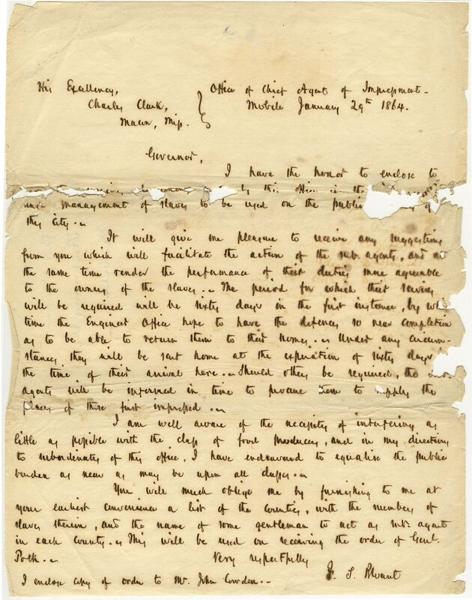 His Excellency,
Charles Clark,
Macon, Miss.
Office of Chief Agent of Impressment.
Mobile January 29th 1864.
Governor,
I have the honor to enclose to
by this office in the
management of slaves to be used on the public
this City.
It will give me pleasure to receive any suggestions
from you which will facilitate the action of the sub. agents, and at
the same time render the performance of their duties more agreeable
to the owners of the slaves. The period for which their services
will be required will be sixty days in the first instance, by wh
time the Engineer Office hope to have the defences so near completion
as to be able to return them to their homes. Under any circum-
stances they will be sent home at the expiration of sixty days
the time of their arrival here. Should others be required, the
agents will be informed in time to procure them to supply the
places of those first impressed.
I am well aware of the necessity of interfering as
little as possible with the class of food producers, and in my directions
to subordinates of this office, I have endeavored to equalise the public
burden as near as may be upon all classes.
You will much oblige me by furnishing to me at
your earliest convenience a list of the counties, with the numbers of
slaves therein, and the name of some gentleman to act as sub. agents
in each county. This will be used on receiving the order of Genl.
Polk.
Very respectfully
I enclose copy of order to Mr. John Cowden.